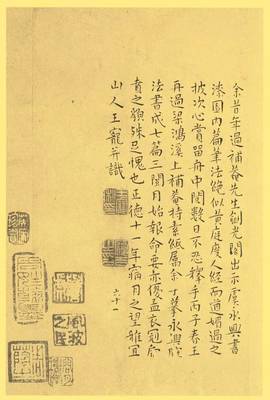 余昔年過補菴先生劍光閣出示虞永興書
漆園内篇筆法絶似黄庭度人經而遒媚過之
披次心賞留舟中閱數日不忍釋手丙子春王
再過梁鴻溪上補菴持素紙属余摹永興
法書成七篇三閱月始報命要亦優孟衣冠
之顰殊足愧也正德十一年病月之望雅宜
山人王寵并識
六十一